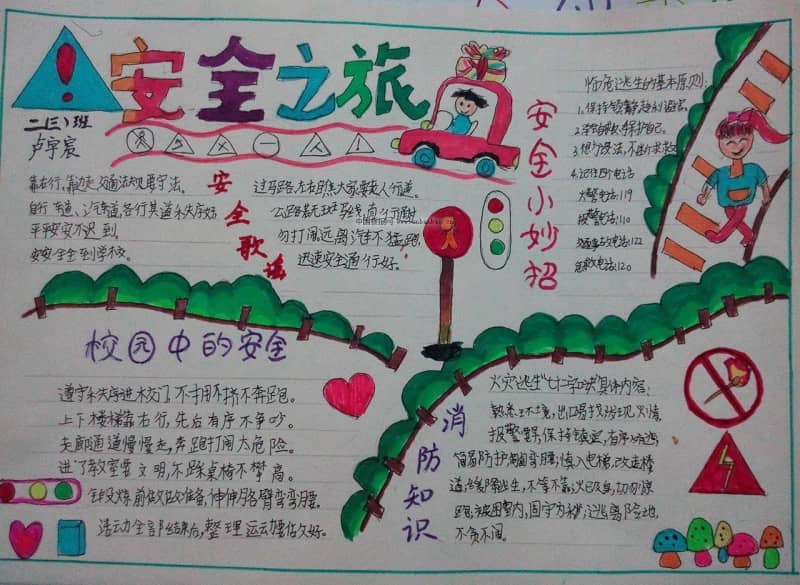 安全之旅
二(三)班
卢宇宸
安全歌谣
靠右行,靠边走,交通法规要守法。
自行车道、汽车道,各行其道
平平安安不迟到
安安全全到学校。
过马路左右
勿打闹远离汽车不猛跑
迅速安全通行好。
安全小妙招
师危逃生的基本原则:
1.保持镇静,
2.学会自救,保护自己。
3.想方设法,不断求救
4.记住四个电话
火警电话:119
报警电话:110
交通事故电话:122
急救电话:120
校园中的安全
遵守秩序进校门 不拥不挤不奔跑。
上下楼梯靠右行,先后有序不争吵。
走廊通道慢慢走,奔跑打闹太危险。
进了教室要文明,不踩桌椅不攀高。
锻炼前做做准备,伸伸胳臂弯弯腰。
活动全部结束后,整理运动
消防知识
火灾逃生"廿字诀"具体内容:
熟悉环境,出口易找;发现火情,
报警要早;保持镇定,有序
简易防护,匍匐弯腰;慎入电梯,改走楼
道;缓降逃生,不等不靠;火已及身,切勿惊
跑;被困室内,固守为妙;远离险地,
不贪不闹。